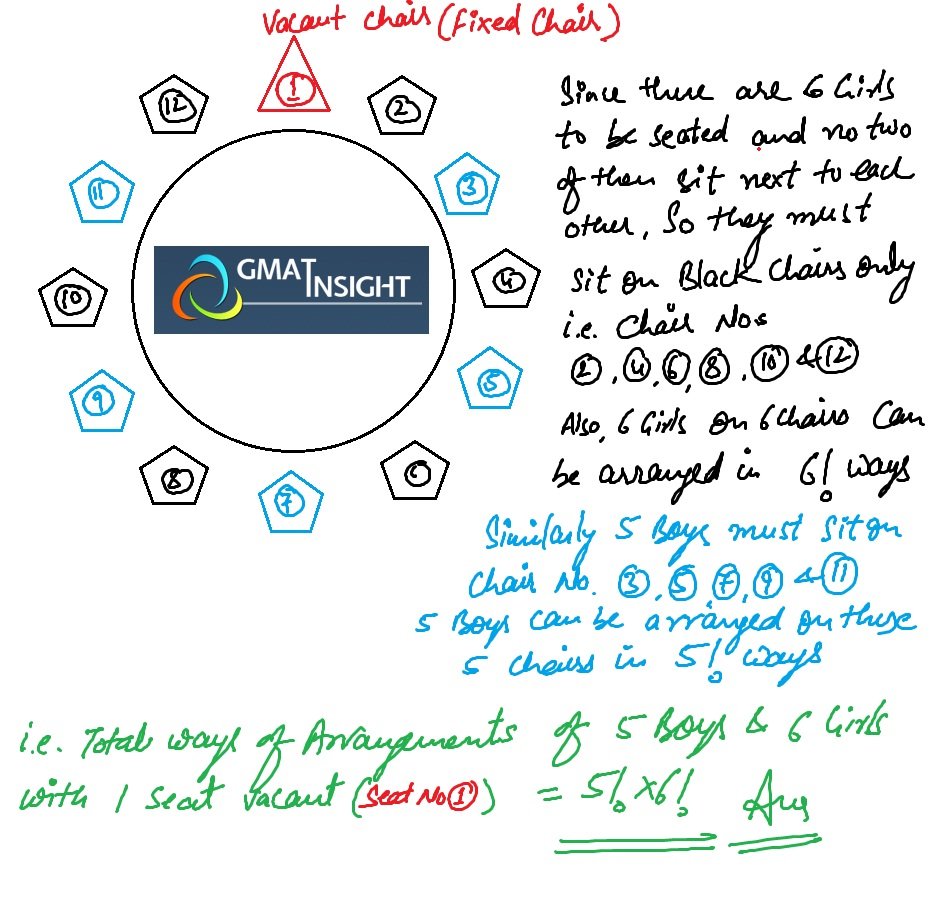 Vacant Chair (Fixed Chair)
1
12
2
11
3
GMAT INSIGHT
10
4
9
5
8
6
7
Since there are 6 Girls
to be seated and no two
of them sit next to each
other, So they must
sit on Black Chairs only
i.e. Chair Nos
2, 4, 6, 8, 10 & 12
Also, 6 Girls on 6 Chairs Can
be arranged in 6! ways
Similarly 5 Boys must sit on
Chair No. 3, 5, 7, 9 & 11
5 Boys can be arranged on these
5 chairs in 5! ways
i.e. Total ways of Arrangements of 5 Boys & 6 Girls
with 1 seat vacant (Seat No 1) = 5! x 6! Ans